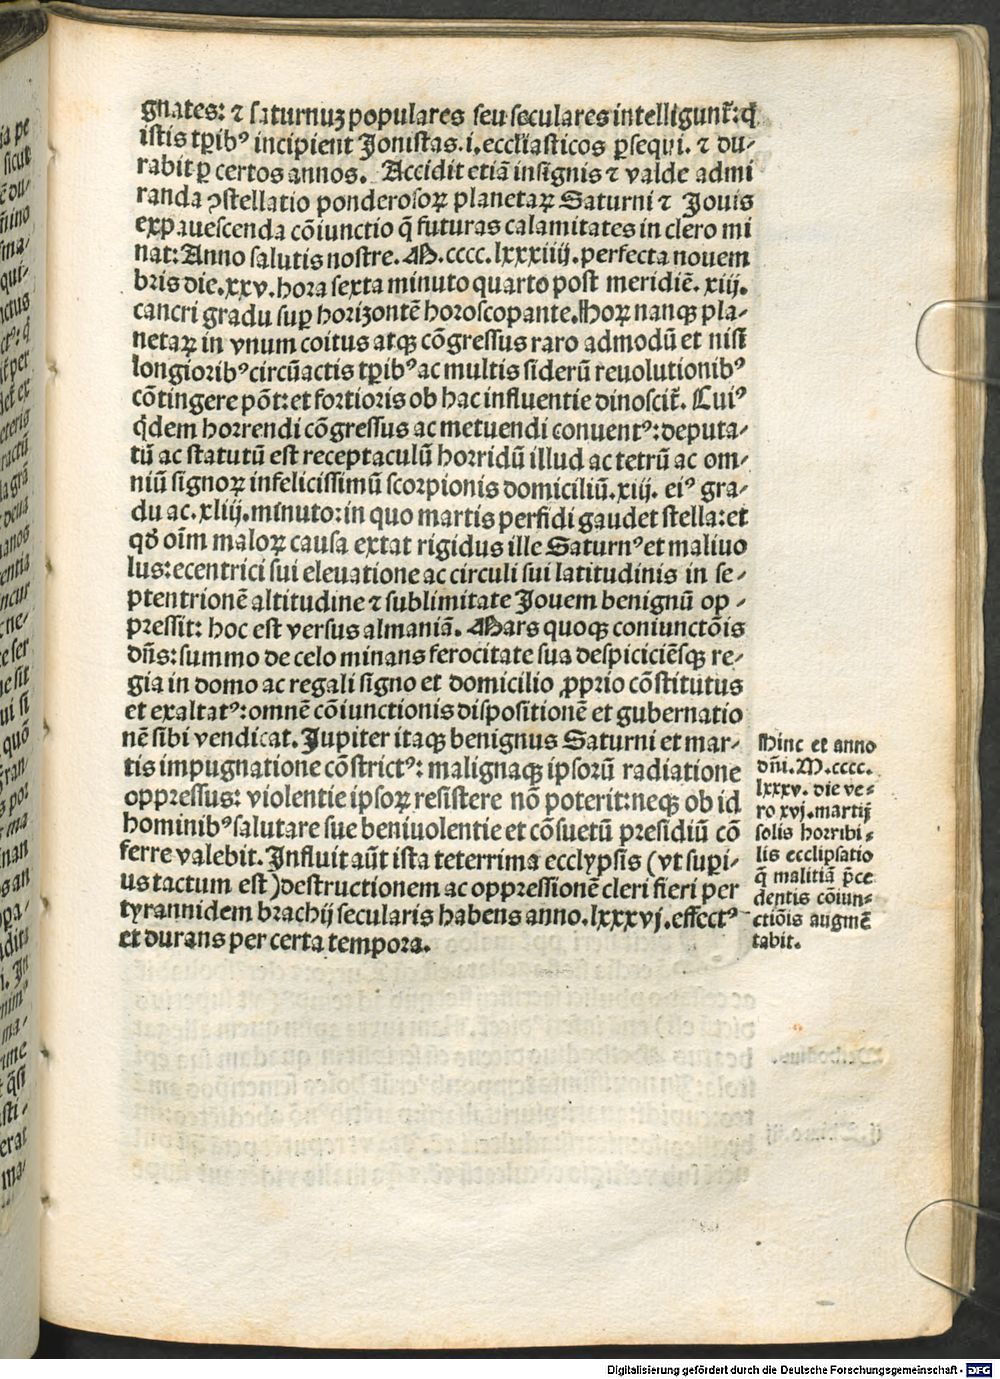 gnates: ⁊ saturnuꝫ populares seu seculares intelligunt᷑: ꝙ
istis tꝑibꝰ incipient Jonistas .i. eccl̄iasticos ꝑsequi. ⁊ du-
rabit ꝑ certos annos. Accidit etiā insignis ⁊ valde admi
randa ꝯstellatio ponderosoꝝ planetaꝝ Saturni ⁊ Jouis
expauescenda cōiunctio q̄ futuras calamitates in clero mi
nat: Anno salutis nostre. M.cccc.lxxxiiij. perfecta nouem
bris die. xxv. hora sexta minuto quarto post meridiē. xiij.
cancri gradu suꝑ horizontē horoscopante. Hoꝝ nanqꝫ pla-
netaꝝ in vnum coitus atqꝫ cōgressus raro admodū et nisi
longioribꝰ circūactis tꝑibꝰ ac multis siderū reuolutionibꝰ
cōtingere pōt: et fortioris ob hac influentie dinoscit᷑. Cuiꝰ
q̇dem horrendi cōgressus ac metuendi conuentꝰ: deputa-
tū ac statutū est receptaculū horridū illud ac tetrū ac om-
niū signoꝝ infelicissimū scorpionis domiciliū. xiij. eiꝰ gra-
du ac. xliij. minuto: in quo martis perfidi gaudet stella: et
qđ oīm maloꝝ causa extat rigidus ille Saturnꝰ et maliuo
lus: ecentrici sui eleuatione ac circuli sui latitudinis in se-
ptentrionē altitudine ⁊ sublimitate Jouem benignū op-
pressit: hoc est versus almaniā. Mars quoqꝫ coniunctōis
dn̄s: summo de celo minans ferocitate sua despiciciēsqꝫ re-
gia in domo ac regali signo et domicilio ꝓprio cōstitutus
et exaltatꝰ: omnē cōiunctionis dispositionē et gubernatio
nē sibi vendicat. Jupiter itaqꝫ benignus Saturni et mar-
tis impugnatione cōstrictꝰ: malignaqꝫ ipsorū radiatione
oppressus: violentie ipsoꝝ resistere nō poterit: neqꝫ ob id
hominibꝰ salutare sue beniuolentie et cōsuetū presidiū cō
ferre valebit. Influit aūt ista teterrima ecclypsis (vt supi-
us tactum est) destructionem ac oppressionē cleri fieri per
tyrannidem brachij secularis habens anno. lxxxvj. effectꝰ
et durans per certa tempora.
Hinc et anno
dn̄i. M.cccc.
lxxxv. die ve-
ro xvj. martij
solis horribi-
lis eccliṗsatio
q̄ malitiā p̄ce
dentis cōiun-
ctiōis augmē
tabit.
Digitalisierung gefördert durch die Deutsche Forschungsgemeinschaft - DFG